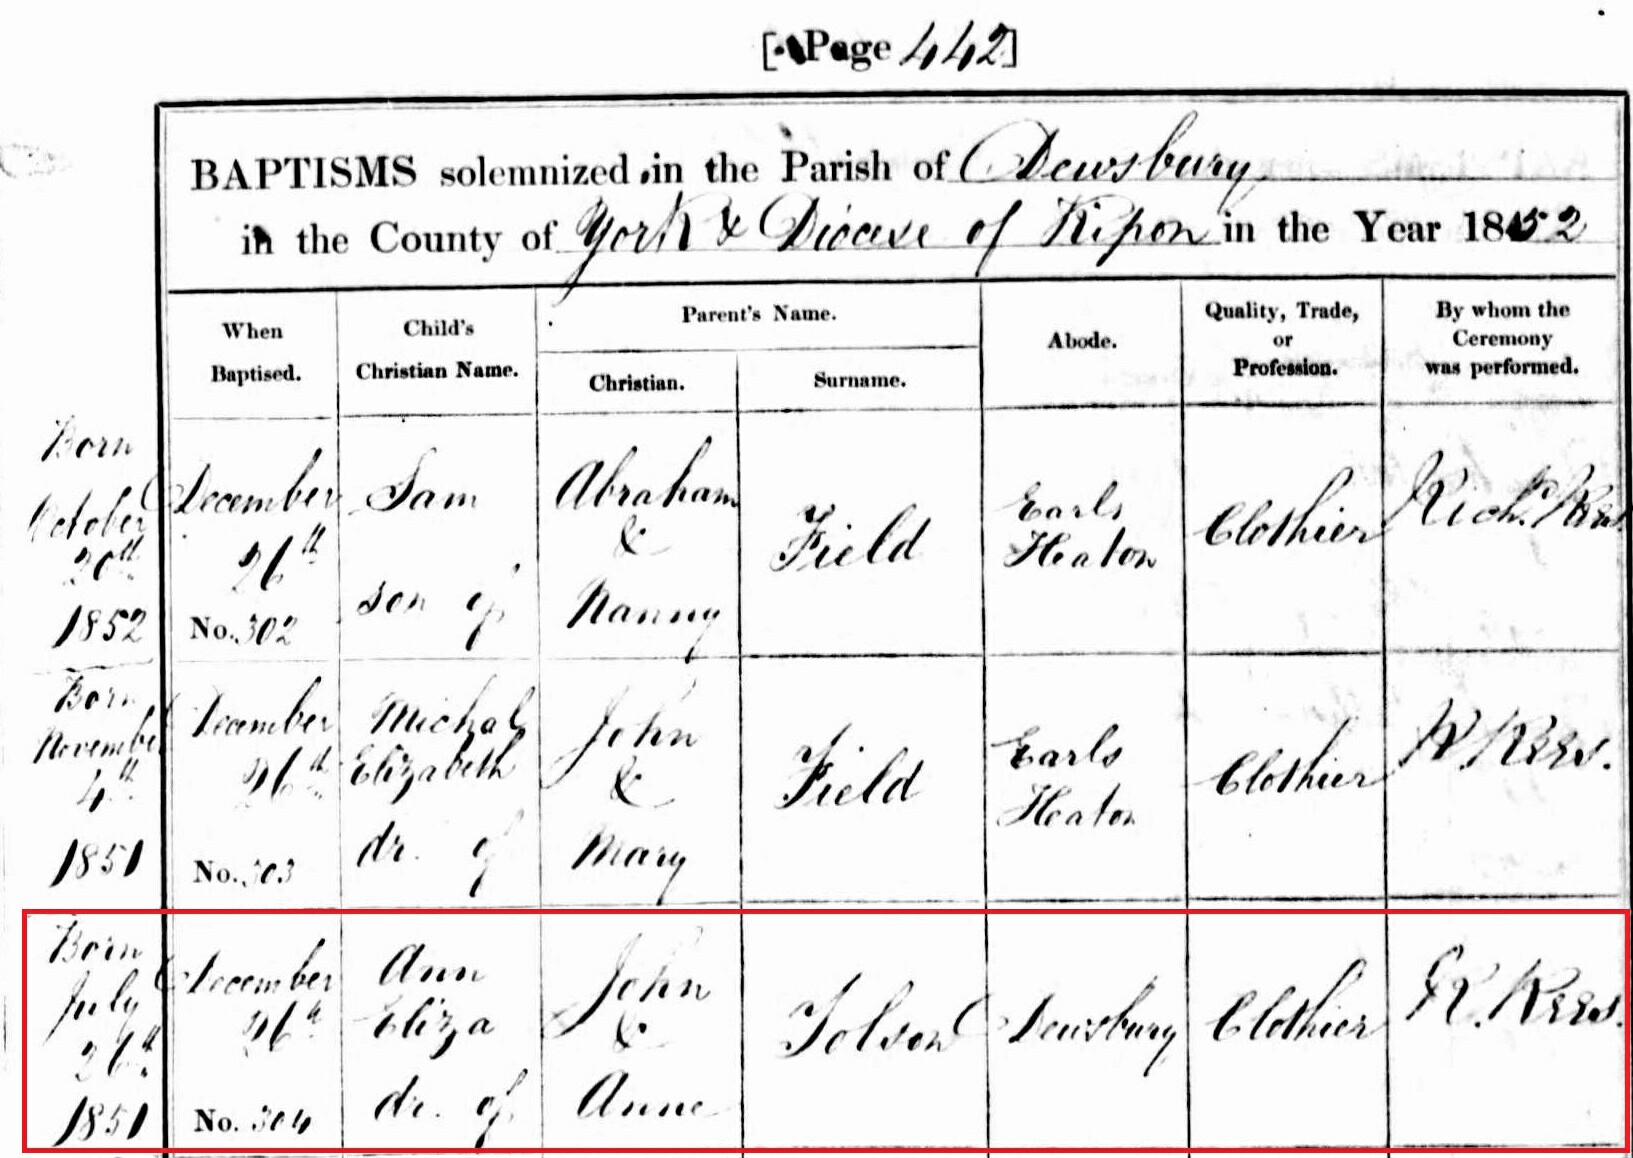 [Page 442]
BAPTISMS solemnized in the Parish of Dewsbury
in the County of York & Diocese of Ripon in the Year 1852
When
Baptised.
Child's
Christian Name.
Parent's Name.
Christian.
Surname.
Abode.
Quality, Trade,
or
Profession.
By whom the
Ceremony
was performed.
Born
October
20th
1852
December
26th
No. 302
Sam
son of
Abraham
&
Nanny
Field
Earls
Heaton
Clothier
Richd. Rees
Born
November
4th
1851
December
26th
No. 303
Michal
Elizabeth
dr. of
John
&
Mary
Field
Earls
Heaton
Clothier
R. Rees.
Born
July
26th
1851
December
26th
No. 304
Ann
Eliza
dr. of
John
&
Anne
Tolson
Dewsbury
Clothier
R. Rees.